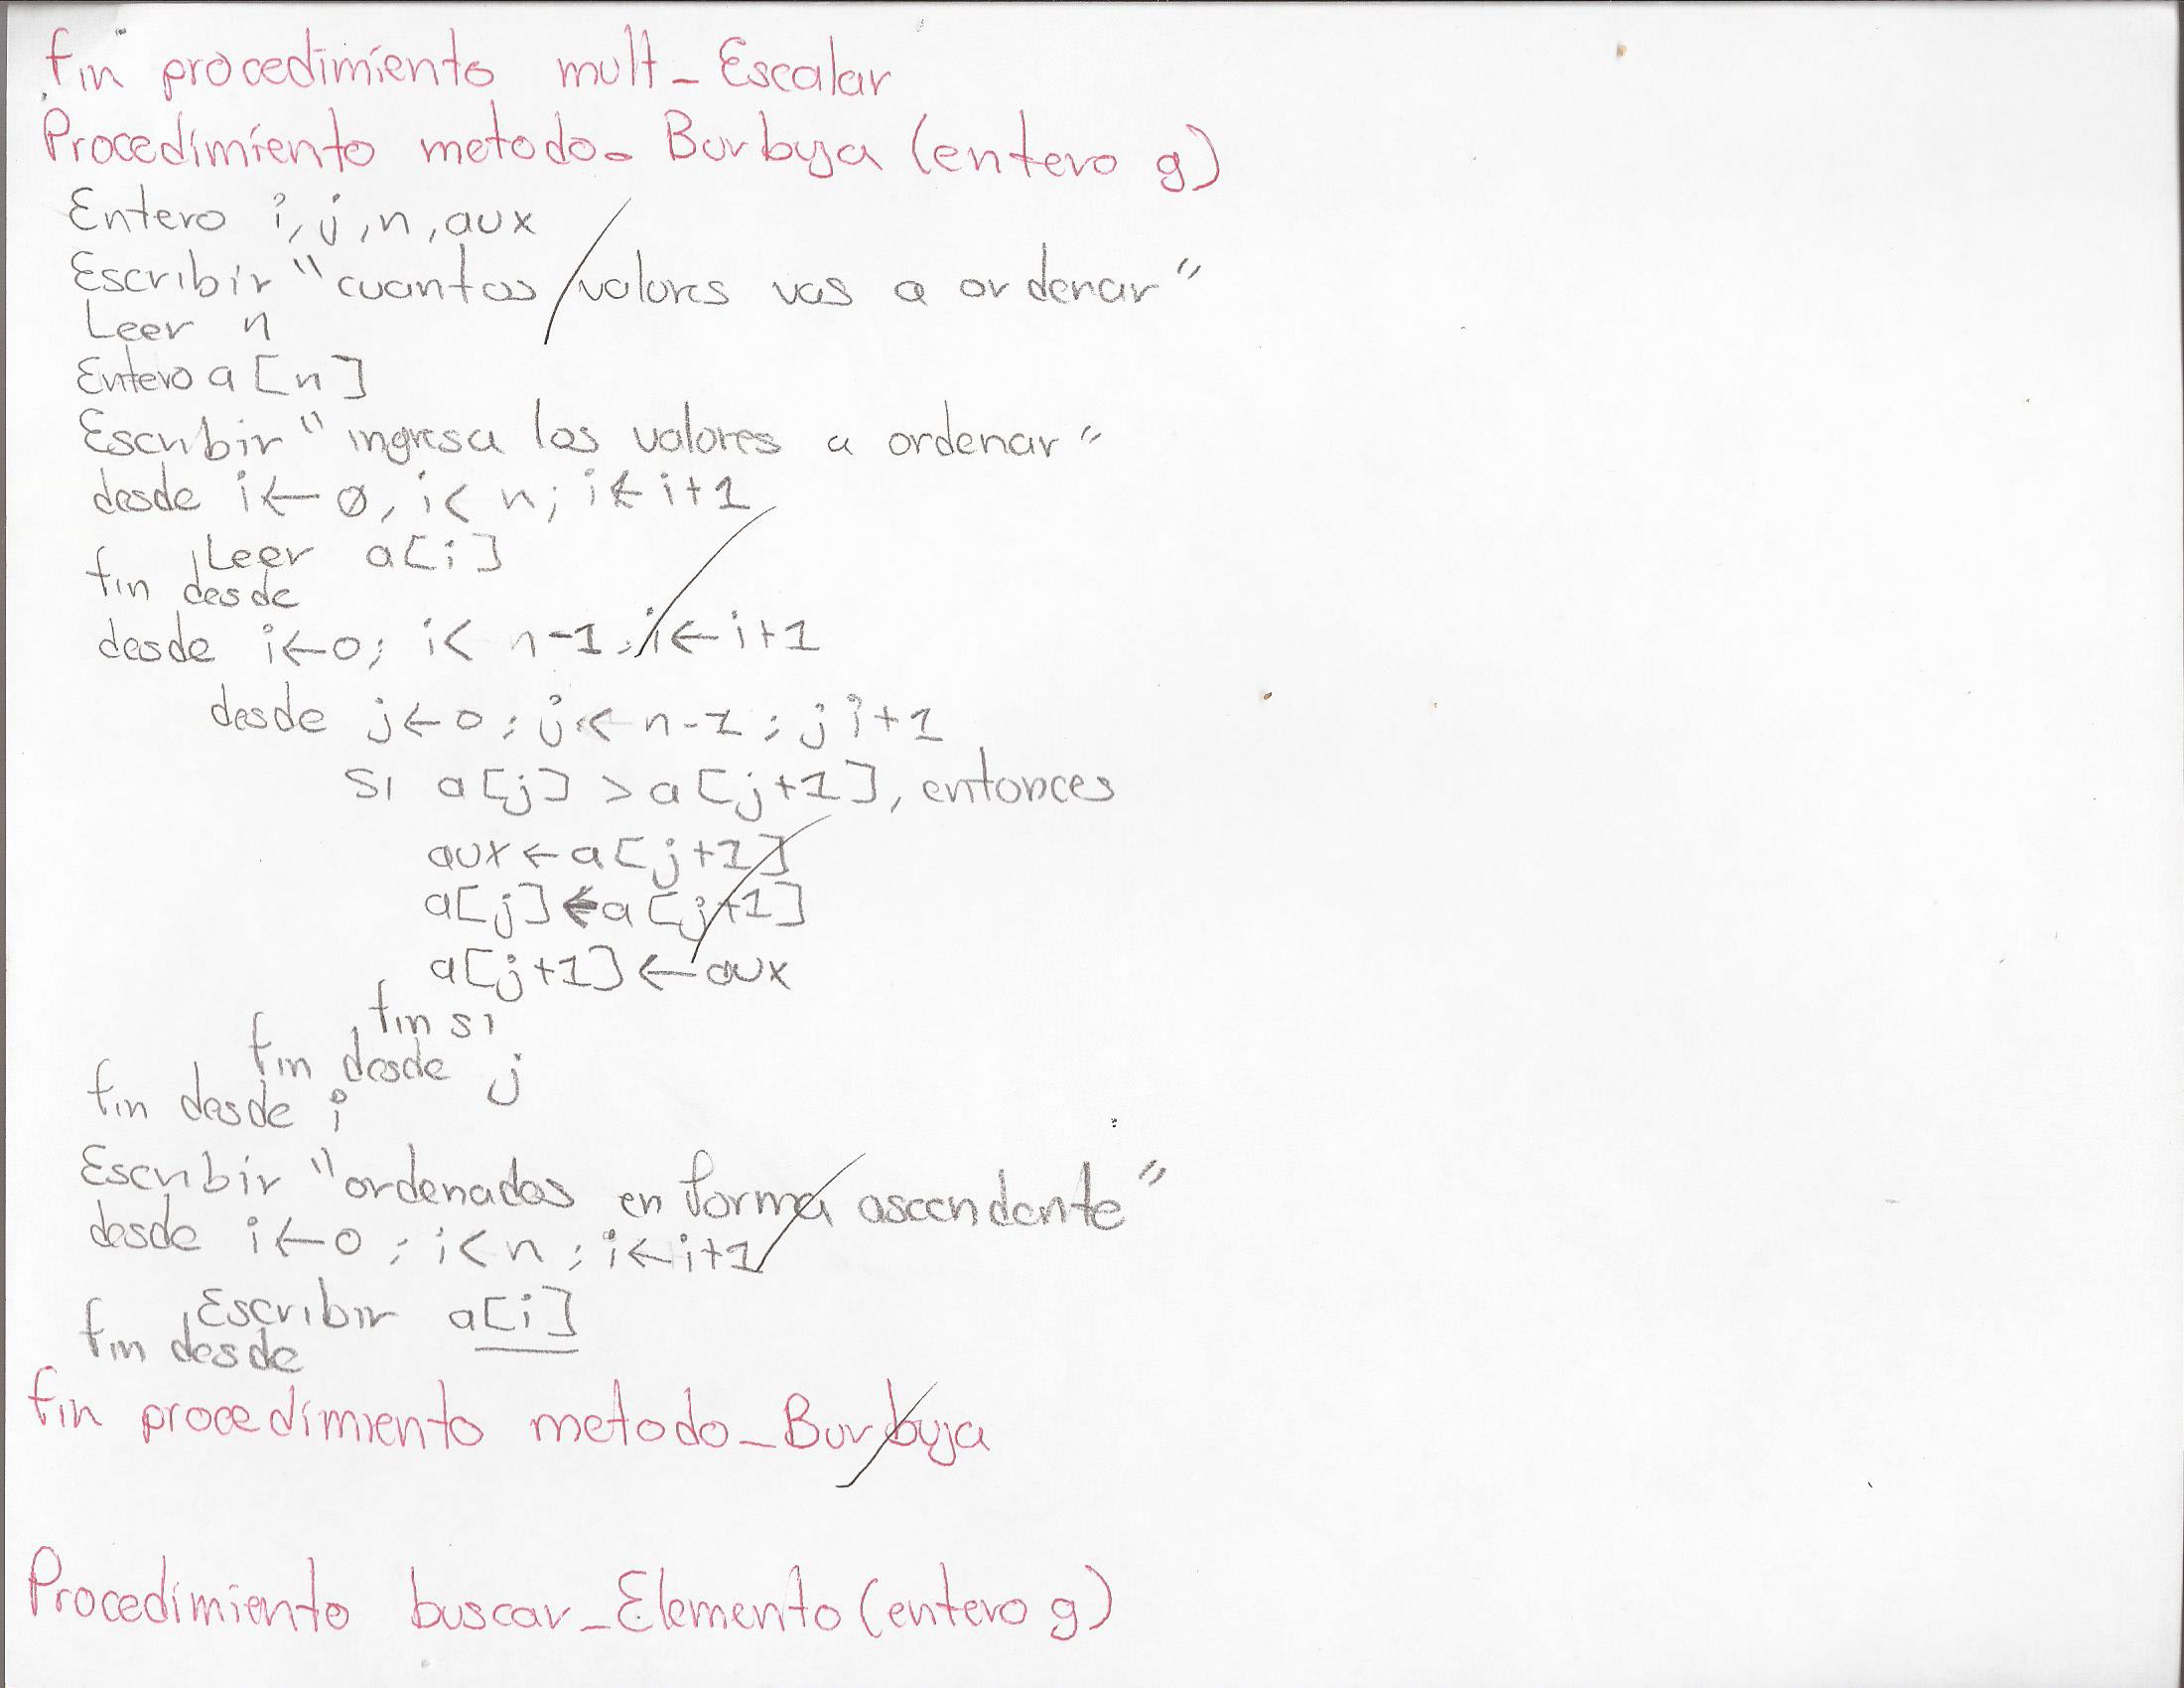 fin procedimiento mult_Escalar
Procedimiento metodo_Burbuja (entero g)
Entero i, j, n, aux
Escribir "cuantos valores vas a ordenar"
Leer n
Entero a[n]
Escribir "ingresa los valores a ordenar"
desde i←0, i< n; i← i+1
Leer a[i]
fin desde
desde i←0; i< n-1; i← i+1
desde j←0; j< n-1; j i+1
Si a[j] > a[j+1], entonces
aux←a[j+1]
a[j]←a[j+1]
a[j+1]←aux
fin si
fin desde j
fin desde i
Escribir "ordenados en forma ascendente"
desde i←0; i<n; i←i+1
Escribir a[i]
fin desde
fin procedimiento metodo_Burbuja
Procedimiento buscar_Elemento (entero g)